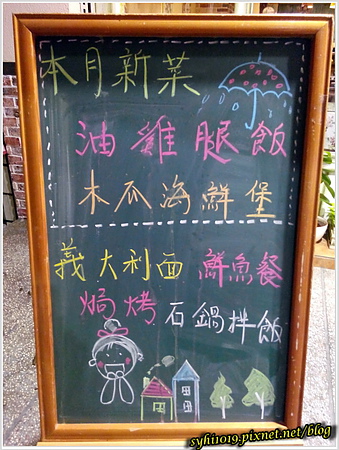 本月新菜
油雞腿飯
木瓜海鮮堡
義大利面 鮮魚餐
焗烤 石鍋拌飯
syhi1019.pixnet.net/blog